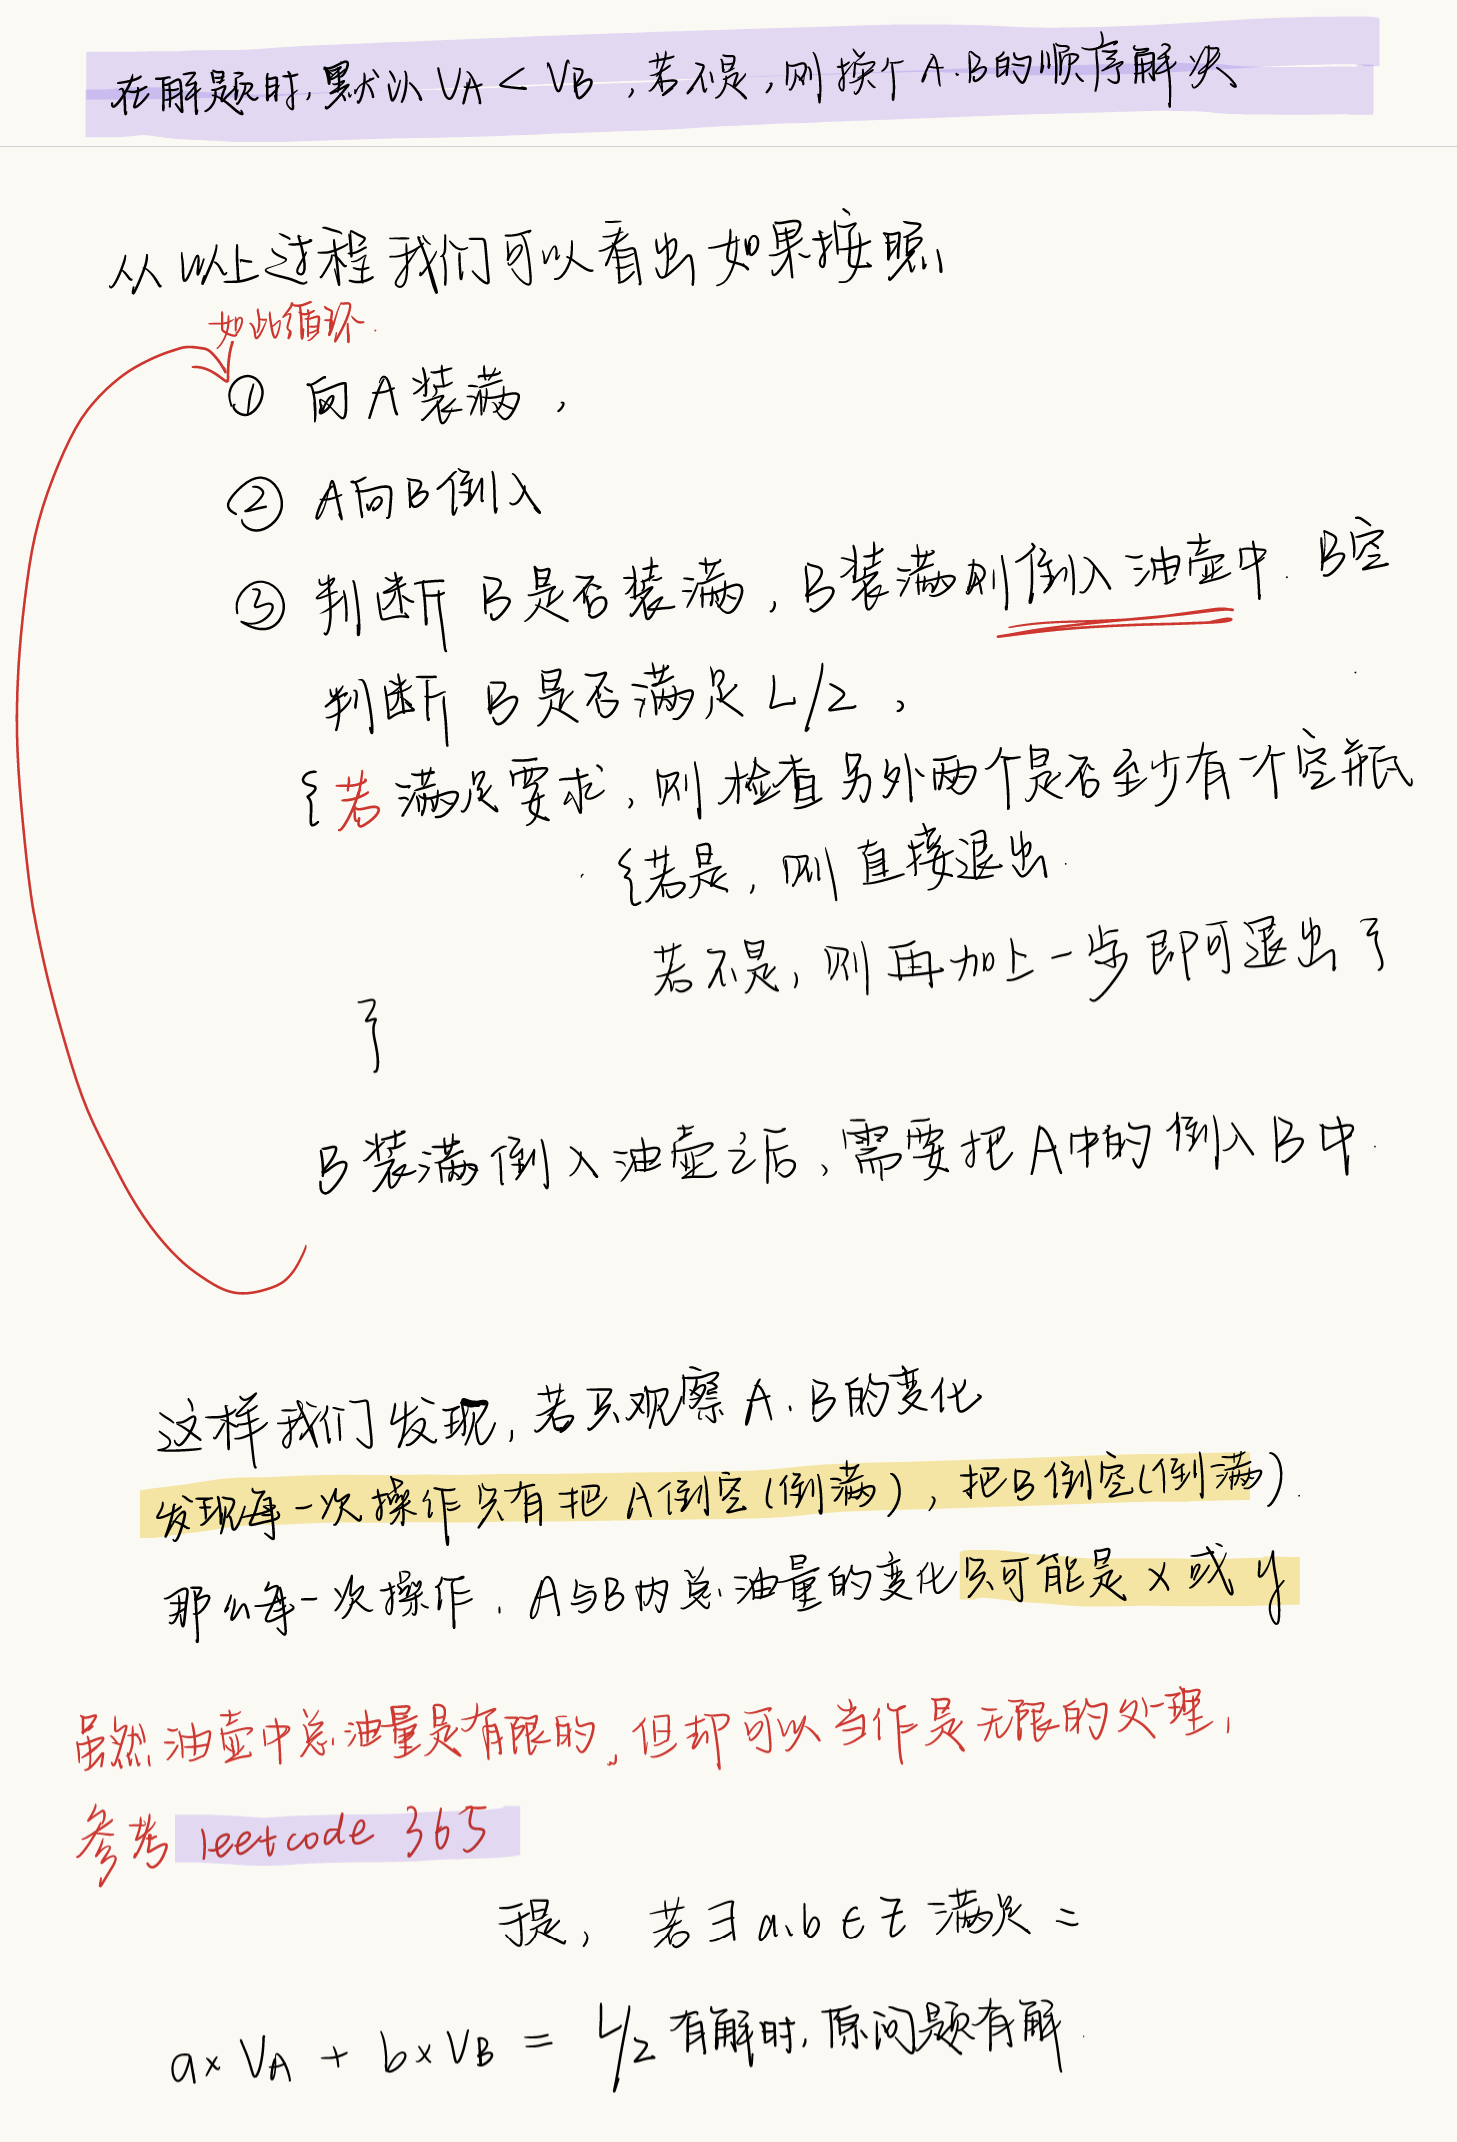 在解题时,默认 VA < VB ,若不是,则换个 A.B的顺序解决
从以上过程我们可以看出如果按照
如此循环.
① 向A装满,
② A向B倒入
③ 判断 B是否装满, B装满则倒入油壶中. B空
判断 B是否满足 L/2 ,
{若满足要求, 则检查另外两个是否至少有一个空瓶
{若是, 则直接退出.
若不是, 则再加上一步即可退出}
}
B装满倒入油壶之后, 需要把A中的倒入B中.
这样我们发现, 若只观察 A. B的变化
发现每一次操作只有把 A倒空(倒满), 把B倒空(倒满).
那么每一次操作. A与B内总油量的变化只可能是 x 或 y
虽然油壶中总油量是有限的, 但却可以当作是无限的处理,
参考 leetcode 365
于是, 若∃ a.b ∈ Z 满足 =
a× VA + b× VB = L/2 有解时, 原问题有解.